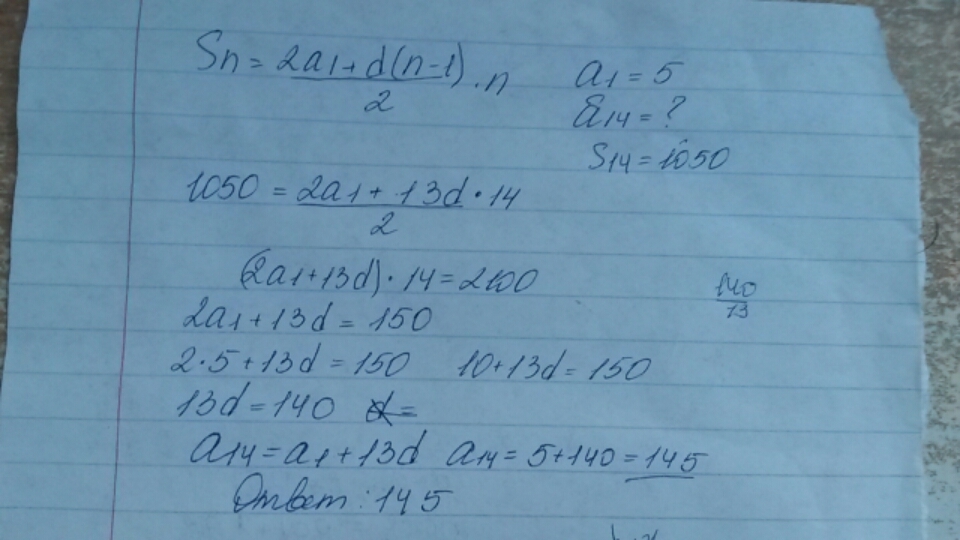 Sn = 2a1 + d(n-1) / 2 · n
a1 = 5
a14 = ?
S14 = 1050
1050 = 2a1 + 13d / 2 · 14
(2a1 + 13d) · 14 = 2100
140 / 13
2a1 + 13d = 150
2·5 + 13d = 150 10 + 13d = 150
13d = 140 d =
a14 = a1 + 13d a14 = 5 + 140 = 145
Ответ: 145